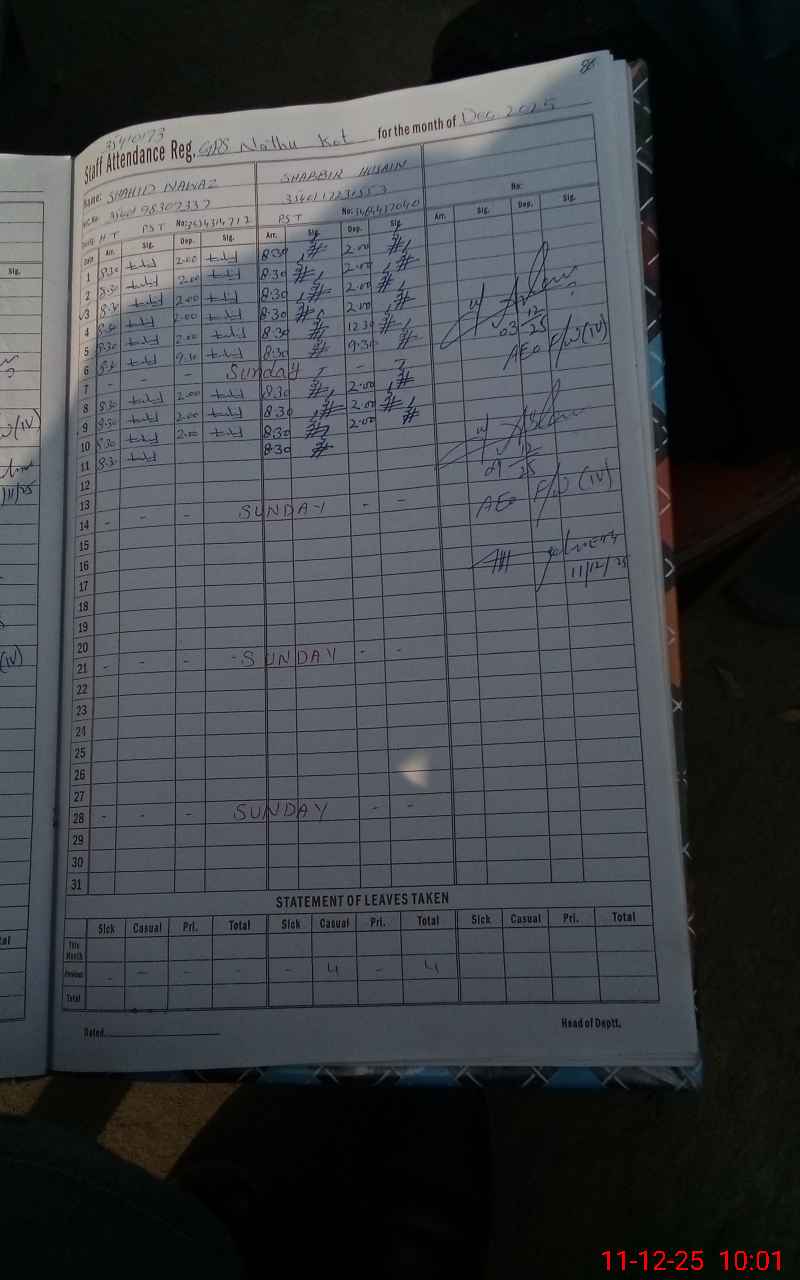 86
35410173
Staff Attendance Reg. GPS Nathu Kot for the month of Dec 2025
Name: SHAHID NAWAZ SHABBIR HUSAIN
3540117231553 No:
PST PST
Date Arr. Sig. Dep. Sig. Arr. Sig. Dep. Sig. Arr. Sig. Dep. Sig.
1 8:30 2:00 8:30 2:00
2 8:30 2:00 8:30 2:00
3 8:30 2:00 8:30 2:00
4 8:30 2:00 8:30 2:00
5 8:30 2:00 8:30 12:30
6 8:30 9:30 8:30 9:30
7 - - - Sunday -
8 8:30 2:00 8:30 2:00
9 8:30 2:00 8:30 2:00
10 8:30 2:00 8:30 2:00
11 8:30 8:30
12
13
14 - - - SUNDAY - -
15
16
17
18
19
20
21 - - - - SUNDAY - -
22
23
24
25
26
27
28 - - - SUNDAY - -
29
30
31
03 12/25
AEO F/W (IV)
09 12/25
AEO F/W (IV)
11/12/25
STATEMENT OF LEAVES TAKEN
Sick Casual Pri. Total Sick Casual Pri. Total Sick Casual Pri. Total
This Month
Previous - - - - - 4 - 4
Total
Dated
Head of Deptt.
Sig.
(IV)
11/25
(IV)
11-12-25 10:01